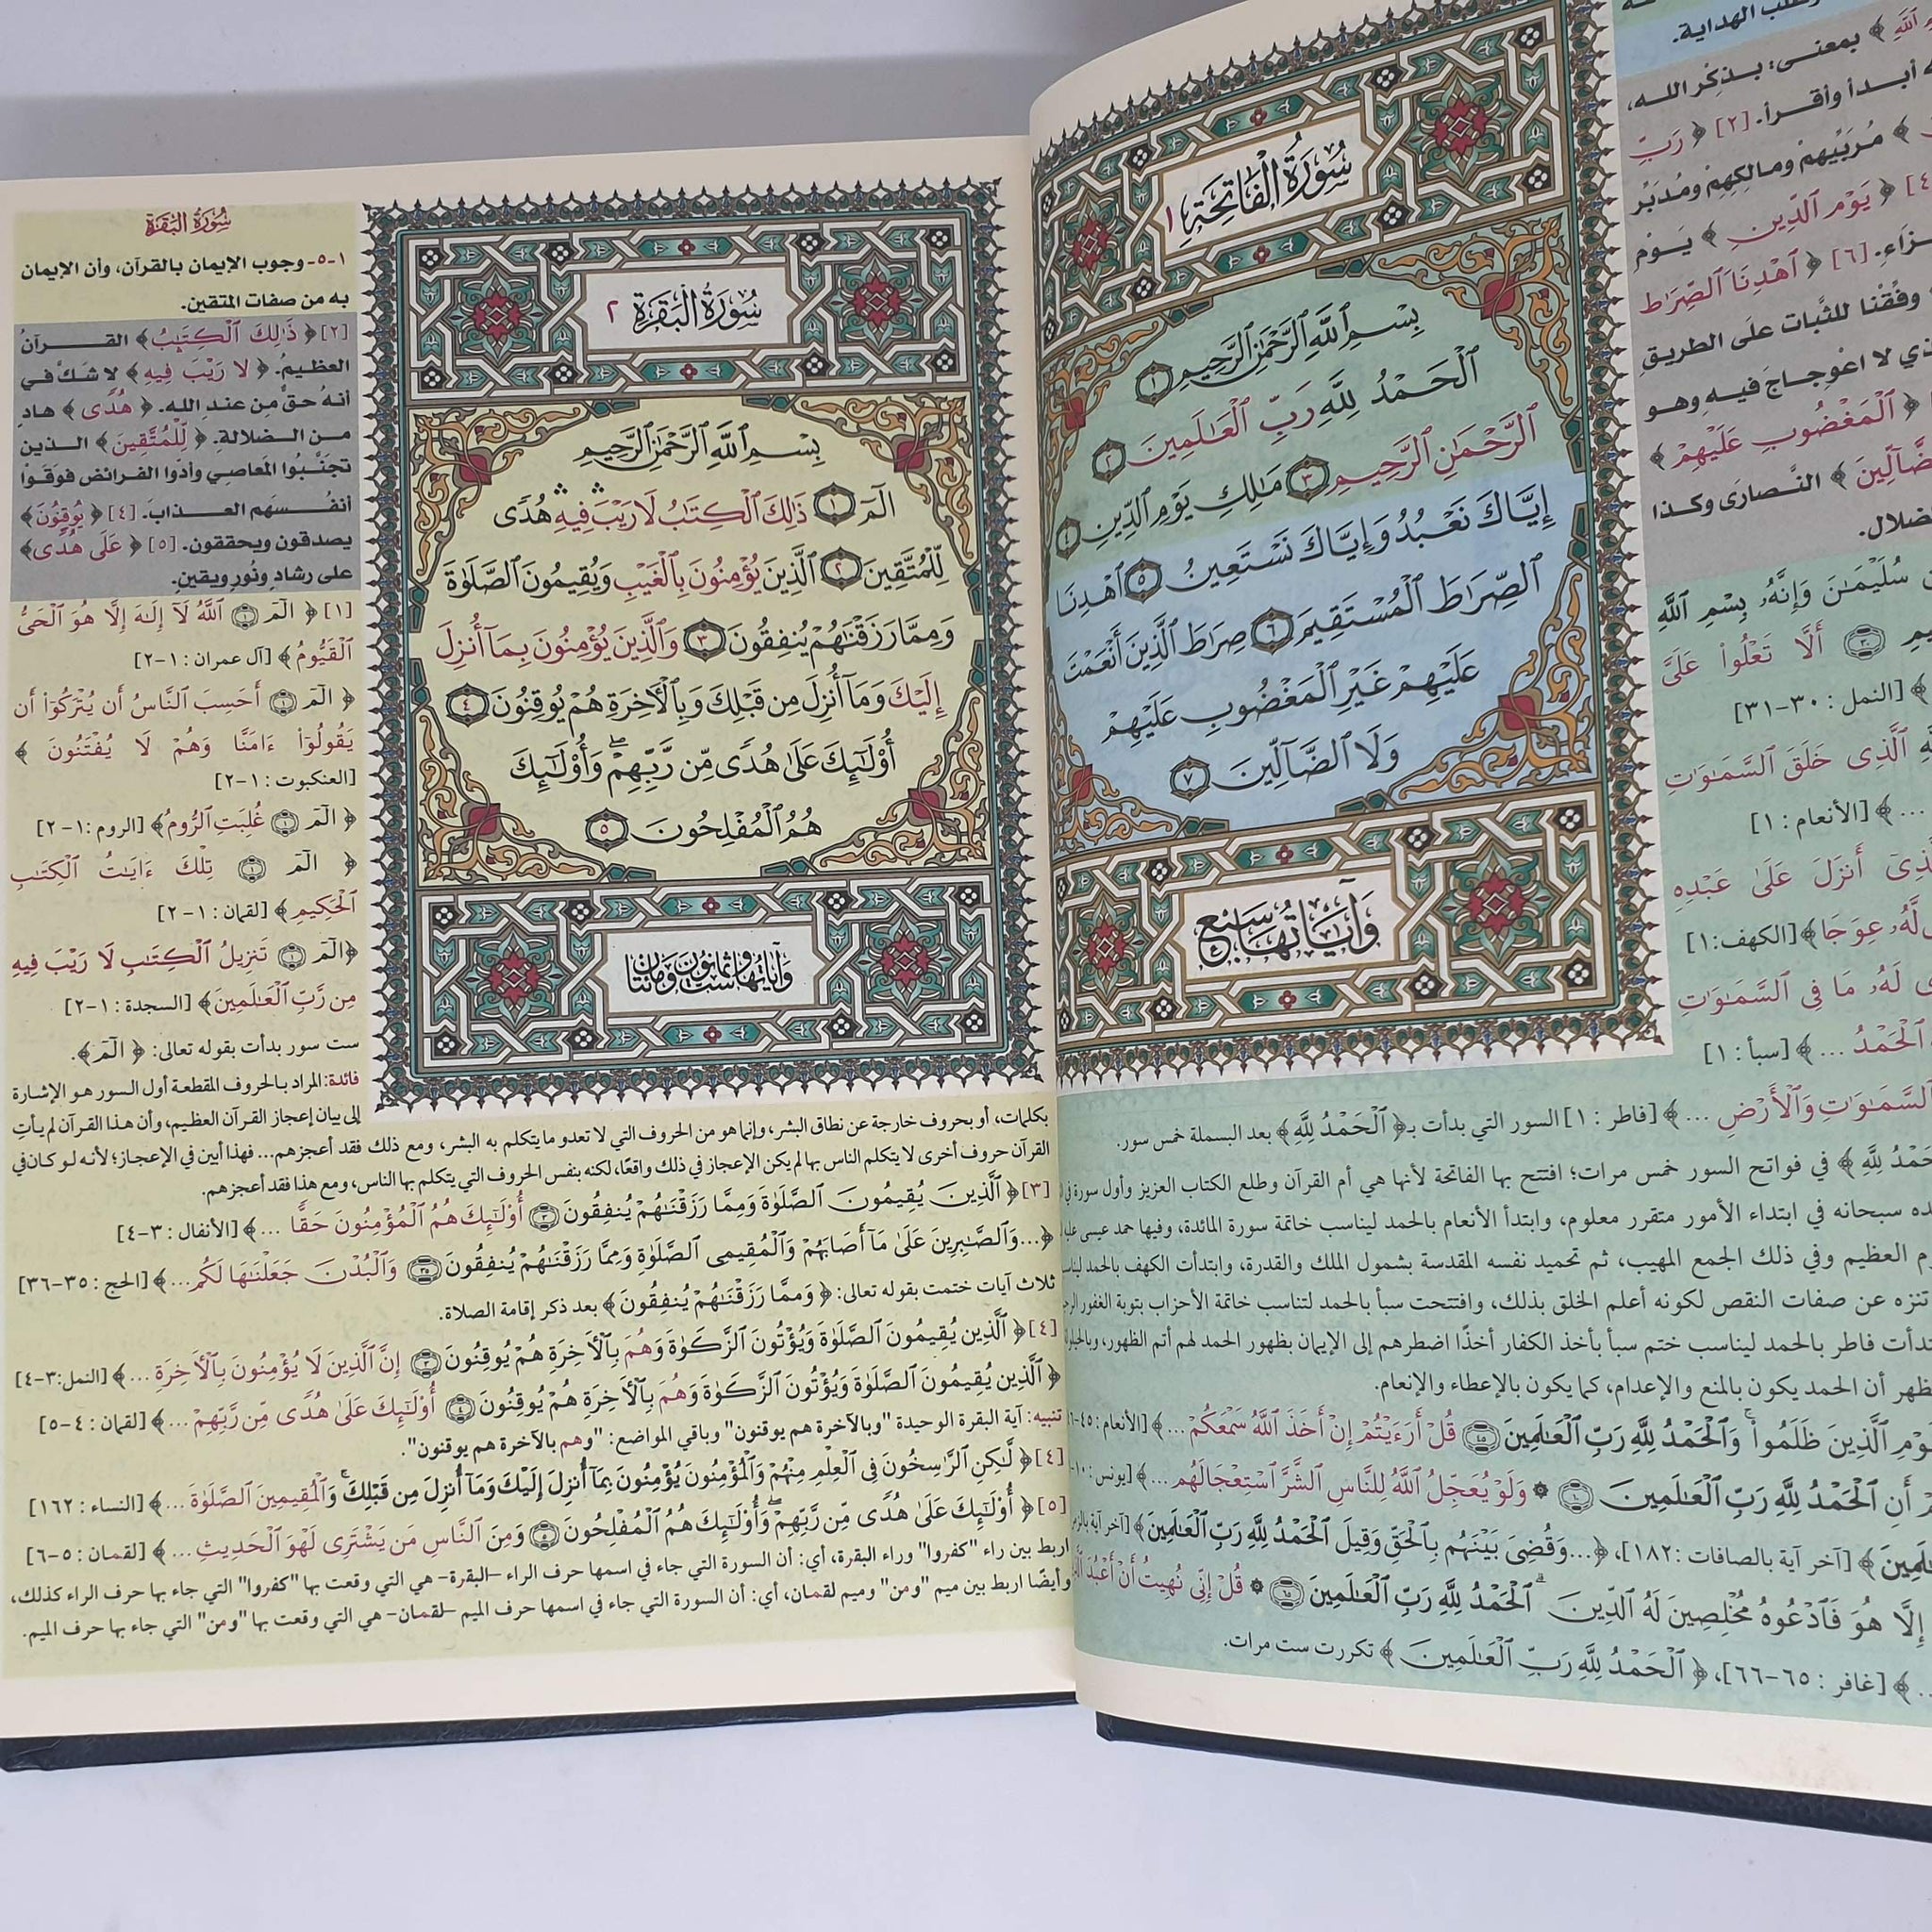 سُورَةُ الْفَاتِحَةِ ١
بِسْمِ ٱللَّهِ ٱلرَّحْمَٰنِ ٱلرَّحِيمِ ١
ٱلْحَمْدُ لِلَّهِ رَبِّ ٱلْعَٰلَمِينَ ٢
ٱلرَّحْمَٰنِ ٱلرَّحِيمِ ٣ مَٰلِكِ يَوْمِ ٱلدِّينِ ٤
إِيَّاكَ نَعْبُدُ وَإِيَّاكَ نَسْتَعِينُ ٥ ٱهْدِنَا
ٱلصِّرَٰطَ ٱلْمُسْتَقِيمَ ٦ صِرَٰطَ ٱلَّذِينَ أَنْعَمْتَ
عَلَيْهِمْ غَيْرِ ٱلْمَغْضُوبِ عَلَيْهِمْ
وَلَا ٱلضَّآلِّينَ ٧
وَآيَاتُهَا سَبْعٌ
الهداية.
ٱللَّهِ ﴾ بمعنى: بـذكْر اللـه،
أبـدأ وأقـرأ. [٢] ﴿ رَبِّ
﴾ مُرَبِّيهِمْ ومـالِكِهِمْ ومُدَبِّرُ
﴿ يَوْمِ ٱلدِّينِ ﴾ يَـوْمُ
[٦] ﴿ ٱهْدِنَا ٱلصِّرَٰطَ
وفِّقْنا للثَّبات علَى الطريقِ
لا اعْوِجـاجَ فيـهِ وهـو
﴿ ٱلْمَغْضُوبِ عَلَيْهِمْ ﴾
﴾ النَّـصارَى وكـذا
سُلَيْمَٰنَ وَإِنَّهُۥ بِسْمِ ٱللَّهِ
٣٠ أَلَّا تَعْلُوا۟ عَلَىَّ
﴾ [النمل : ٣٠-٣١]
ٱلَّذِى خَلَقَ ٱلسَّمَٰوَٰتِ
... ﴾ [الأنعام : ١]
أَنزَلَ عَلَىٰ عَبْدِهِ
لَّهُۥ عِوَجَا ﴾ [الكهف: ١]
لَهُۥ مَا فِى ٱلسَّمَٰوَٰتِ
ٱلْحَمْدُ ... ﴾ [سبأ : ١]
ٱلسَّمَٰوَٰتِ وَٱلْأَرْضِ ... ﴾ [فاطر : ١] السور التي بدأت بـ﴿ ٱلْحَمْدُ لِلَّهِ ﴾ بعد البسملة خمس سور.
﴾ في فواتح السور خمس مرات؛ افتتح بها الفاتحة لأنها هي أم القرآن وطلع الكتاب العزيز وأول سورة
سبحانه في ابتداء الأمور متقرر معلوم، وابتدأ الأنعام بالحمد ليناسب خاتمة سورة المائدة، وفيها حمد عيسى
العظيم وفي ذلك الجمع المهيب، ثم تحميد نفسه المقدسة بشمول الملك والقدرة، وابتدأت الكهف بالحمد
تنزه عن صفات النقص لكونه أعلم الخلق بذلك، وافتتحت سبأ بالحمد لتناسب خاتمة الأحزاب بتوبة الغفور
فاطر بالحمد ليناسب ختم سبأ بأخذ الكفار أخذًا اضطرهم إلى الإيمان بظهور الحمد لهم أتم الظهور،
أن الحمد يكون بالمنع والإعدام، كما يكون بالإعطاء والإنعام.
ٱلَّذِينَ ظَلَمُوا۟ ۚ وَٱلْحَمْدُ لِلَّهِ رَبِّ ٱلْعَٰلَمِينَ ٤٥ قُلْ أَرَءَيْتُمْ إِنْ أَخَذَ ٱللَّهُ سَمْعَكُمْ ... ﴾ [الأنعام :
أَنِ ٱلْحَمْدُ لِلَّهِ رَبِّ ٱلْعَٰلَمِينَ ١٠ ۞ وَلَوْ يُعَجِّلُ ٱللَّهُ لِلنَّاسِ ٱلشَّرَّ ٱسْتِعْجَالَهُم ... ﴾ [يونس :
﴾ [آخر آية بالصافات : ١٨٢]، ﴿...وَقُضِىَ بَيْنَهُم بِٱلْحَقِّ وَقِيلَ ٱلْحَمْدُ لِلَّهِ رَبِّ ٱلْعَٰلَمِينَ﴾ [آخر آية
إِلَّا هُوَ فَٱدْعُوهُ مُخْلِصِينَ لَهُ ٱلدِّينَ ۗ ٱلْحَمْدُ لِلَّهِ رَبِّ ٱلْعَٰلَمِينَ ٦٥ ۞ قُلْ إِنِّى نُهِيتُ أَنْ أَعْبُدَ
... ﴾ [غافر : ٦٥-٦٦]، ﴿ ٱلْحَمْدُ لِلَّهِ رَبِّ ٱلْعَٰلَمِينَ ﴾ تكررت ست مرات.
سُورَةُ الْبَقَرَةِ ٢
بِسْمِ ٱللَّهِ ٱلرَّحْمَٰنِ ٱلرَّحِيمِ
الٓمٓ ١ ذَٰلِكَ ٱلْكِتَٰبُ لَا رَيْبَ ۛ فِيهِ ۛ هُدًى
لِّلْمُتَّقِينَ ٢ ٱلَّذِينَ يُؤْمِنُونَ بِٱلْغَيْبِ وَيُقِيمُونَ ٱلصَّلَوٰةَ
وَمِمَّا رَزَقْنَٰهُمْ يُنفِقُونَ ٣ وَٱلَّذِينَ يُؤْمِنُونَ بِمَآ أُنزِلَ
إِلَيْكَ وَمَآ أُنزِلَ مِن قَبْلِكَ وَبِٱلْـَٔاخِرَةِ هُمْ يُوقِنُونَ ٤
أُو۟لَٰٓئِكَ عَلَىٰ هُدًى مِّن رَّبِّهِمْ ۖ وَأُو۟لَٰٓئِكَ
هُمُ ٱلْمُفْلِحُونَ ٥
وآياتها ست وثمانون ومائتان
سُورَةُ الْبَقَرَةِ
١-٥- وجوب الإيمان بالقرآن، وأن الإيمان
به من صفات المتقين.
[٢] ﴿ ذَٰلِكَ ٱلْكِتَٰبُ ﴾ القـــرآنُ
العظـيمُ. ﴿ لا رَيْبَ فِيهِ ﴾ لا شكَّ في
أنهُ حقٌّ مِن عندِ الله. ﴿ هُدًى ﴾ هادٍ
مـن الـضلالةِ. ﴿ لِّلْمُتَّقِينَ ﴾ الـذين
تجنَّبُوا المَعاصِي وأدَوا الفـرائض فوقَوْا
أنفُـسَهم العــذابَ. [٤] ﴿ يُوقِنُونَ ﴾
يصدقون ويحققون. [٥] ﴿ عَلَى هُدًى ﴾
على رشادٍ ونُورٍ ويقينٍ.
[١] ﴿ الٓمٓ ١ ٱللَّهُ لَآ إِلَٰهَ إِلَّا هُوَ ٱلْحَىُّ
ٱلْقَيُّومُ ﴾ [آل عمران : ١-٢]
﴿ الٓمٓ ١ أَحَسِبَ ٱلنَّاسُ أَن يُتْرَكُوٓا۟ أَن
يَقُولُوٓا۟ ءَامَنَّا وَهُمْ لَا يُفْتَنُونَ ﴾
[العنكبوت : ١-٢]
﴿ الٓمٓ ١ غُلِبَتِ ٱلرُّومُ ﴾ [الروم : ١-٢]
﴿ الٓمٓ ١ تِلْكَ ءَايَٰتُ ٱلْكِتَٰبِ
ٱلْحَكِيمِ ﴾ [لقمان : ١-٢]
﴿ الٓمٓ ١ تَنزِيلُ ٱلْكِتَٰبِ لَا رَيْبَ فِيهِ
مِن رَّبِّ ٱلْعَٰلَمِينَ ﴾ [السجدة : ١-٢]
ست سور بدأت بقوله تعالى: ﴿ الٓمٓ ﴾.
فائدة: المراد بالحروف المقطعة أول السور هو الإشارة
إلى بيان إعجاز القرآن العظيم، وأن هذا القرآن لم يأتِ
بكلمات، أو بحروف خارجة عن نطاق البشر، وإنما هو من الحروف التي لا تعدو ما يتكلم به البشر، ومع ذلك فقد أعجزهم... فهذا أبين في الإعجاز؛ لأنه لو كان في
القرآن حروف أخرى لا يتكلم الناس بها لم يكن الإعجاز في ذلك واقعًا، لكنه بنفس الحروف التي يتكلم بها الناس، ومع هذا فقد أعجزهم.
[٣] ﴿ ٱلَّذِينَ يُقِيمُونَ ٱلصَّلَوٰةَ وَمِمَّا رَزَقْنَٰهُمْ يُنفِقُونَ ٣ أُو۟لَٰٓئِكَ هُمُ ٱلْمُؤْمِنُونَ حَقًّا ... ﴾ [الأنفال : ٣-٤]
﴿ ...وَٱلصَّٰبِرِينَ عَلَىٰ مَآ أَصَابَهُمْ وَٱلْمُقِيمِى ٱلصَّلَوٰةِ وَمِمَّا رَزَقْنَٰهُمْ يُنفِقُونَ ٣٥ وَٱلْبُدْنَ جَعَلْنَٰهَا لَكُم... ﴾ [الحج : ٣٥-٣٦]
ثلاث آيات ختمت بقوله تعالى: ﴿ وَمِمَّا رَزَقْنَٰهُمْ يُنفِقُونَ ﴾ بعد ذكر إقامة الصلاة.
[٤] ﴿ ٱلَّذِينَ يُقِيمُونَ ٱلصَّلَوٰةَ وَيُؤْتُونَ ٱلزَّكَوٰةَ وَهُم بِٱلْـَٔاخِرَةِ هُمْ يُوقِنُونَ ٣ إِنَّ ٱلَّذِينَ لَا يُؤْمِنُونَ بِٱلْـَٔاخِرَةِ ... ﴾ [النمل: ٣-٤]
﴿ ٱلَّذِينَ يُقِيمُونَ ٱلصَّلَوٰةَ وَيُؤْتُونَ ٱلزَّكَوٰةَ وَهُم بِٱلْـَٔاخِرَةِ هُمْ يُوقِنُونَ ٤ أُو۟لَٰٓئِكَ عَلَىٰ هُدًى مِّن رَّبِّهِمْ ... ﴾ [لقمان : ٤-٥]
تنبيه: آية البقرة الوحيدة "وبالآخرة هم يوقنون" وباقي المواضع: "وهم بالآخرة هم يوقنون".
[٤] ﴿ لَّٰكِنِ ٱلرَّٰسِخُونَ فِى ٱلْعِلْمِ مِنْهُمْ وَٱلْمُؤْمِنُونَ يُؤْمِنُونَ بِمَآ أُنزِلَ إِلَيْكَ وَمَآ أُنزِلَ مِن قَبْلِكَ ۚ وَٱلْمُقِيمِينَ ٱلصَّلَوٰةَ ... ﴾ [النساء : ١٦٢]
[٥] ﴿ أُو۟لَٰٓئِكَ عَلَىٰ هُدًى مِّن رَّبِّهِمْ ۖ وَأُو۟لَٰٓئِكَ هُمُ ٱلْمُفْلِحُونَ ٥ وَمِنَ ٱلنَّاسِ مَن يَشْتَرِى لَهْوَ ٱلْحَدِيثِ ... ﴾ [لقمان : ٥-٦]
اربط بين راء "كفروا" وراء البقرة، أي: أن السورة التي جاء في اسمها حرف الراء –البقرة- هي التي وقعت بها "كفروا" التي جاء بها حرف الراء كذلك،
وأيضًا اربط بين ميم "ومن" وميم لقمان، أي: أن السورة التي جاء في اسمها حرف الميم –لقمان- هي التي وقعت بها "ومن" التي جاء بها حرف الميم.